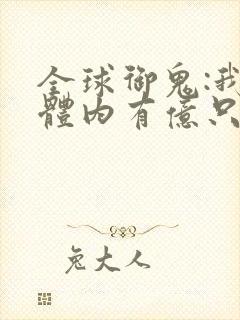 全球御鬼:我
體內有億只
兔大人